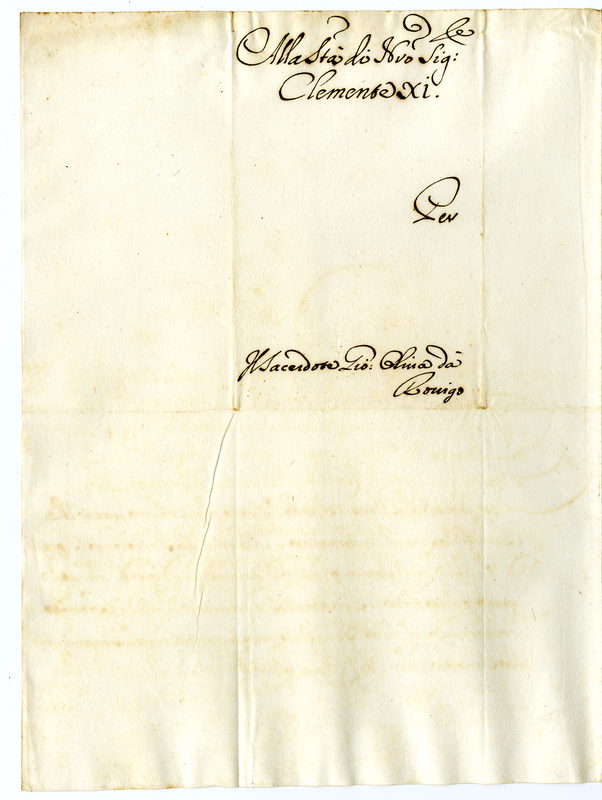 Alla Stà di Nro Sig:re
Clemente XI.
Per
Il Sacerdote Gio: Oliva da
Rovigo